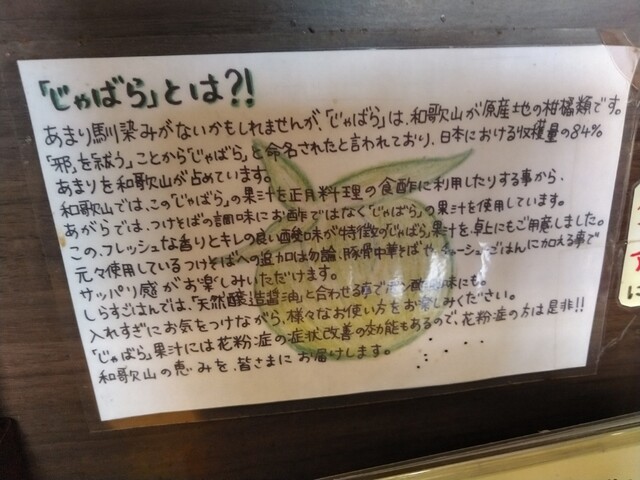 「じゃばら」とは?!
あまり馴染みがないかもしれませんが、「じゃばら」は、和歌山が原産地の柑橘類です。
「邪」を祓う」ことから「じゃばら」と命名されたと言われており、日本における収穫量の84%
あまりを和歌山が占めています。
和歌山では、この「じゃばら」の果汁を正月料理の食酢に利用したりする事から、
あがらでは、つけそばの調味にお酢ではなく「じゃばら」の果汁を使用しています。
この、フレッシュな香りとキレの良い酸味が特徴の「じゃばら」果汁を、卓上にもご用意しました。
元々使用しているつけそばへの追加は勿論、豚骨中華そばや、チャーシューごはんに加える事で
サッパリ感がお楽しみいただけます。
しらすごはんでは、「天然醸造醤油」と合わせる事で
入れすぎにお気をつけながら、様々なお使い方をお楽しみください。
「じゃばら」果汁には花粉症の症状改善の効能もあるので、花粉症の方は是非!!
和歌山の恵みを、皆さまにお届けします。